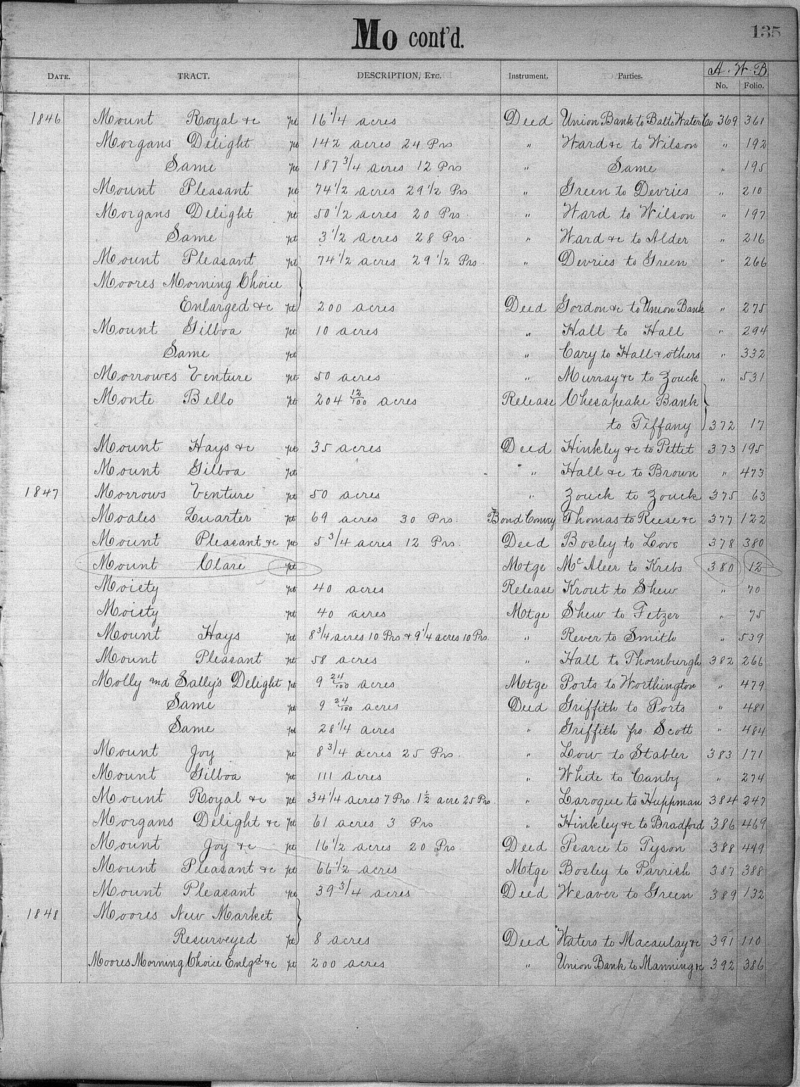 Mo cont'd.
135
DATE. TRACT. DESCRIPTION, ETC. Instrument. Parties. A. W B
No. Folio.
1846 Mount Royal &c pt 16 1/4 acres Deed Union Bank to Balto Water Co 369 361
Morgans Delight pt 142 acres 24 Prs " Ward &c to Wilson " 192
Same pt 187 3/4 acres 12 Prs " Same " 195
Mount Pleasant pt 74 1/2 acres 29 1/2 Prs " Green to Devries " 210
Morgans Delight pt 50 1/2 acres 20 Prs " Ward to Wilson " 197
Same pt 3 1/2 acres 28 Prs " Ward &c to Alder " 216
Mount Pleasant pt 74 1/2 acres 29 1/2 Prs " Devries to Green " 266
Moores Morning Choice
Enlarged &c pt 200 acres Deed Gordon &c to Union Bank " 275
Mount Gilboa pt 10 acres " Hall to Hall " 294
Same pt " Cary to Hall & others " 332
Morrowes Venture pt 50 acres " Murray &c to Zouck " 531
Monte Bello pt 204 12/100 acres Release Chesapeake Bank
to Tiffany 372 17
Mount Hays &c pt 35 acres Deed Hinkley &c to Pettet 373 195
Mount Gilboa pt " Hall &c to Brown " 473
1847 Morrows Venture pt 50 acres " Zouck to Zouck 375 63
Moales Quarter pt 69 acres 30 Prs Bond Convy Thomas to Reese &c 377 122
Mount Pleasant &c pt 5 3/4 acres 12 Prs Deed Bosley to Love 378 380
Mount Clare pt Mtge McAleer to Krebs 380 12
Moiety 40 acres Release Krout to Shew " 70
Moiety pt 40 acres Mtge Shew to Fetzer " 75
Mount Hays pt 8 3/4 acres 10 Prs & 9 1/4 acres 10 Prs " Rever to Smith " 539
Mount Pleasant pt 58 acres " Hall to Thornburgh 382 266
Molly and Sally's Delight pt 9 24/100 acres Mtge Ports to Worthington " 479
Same pt 9 24/100 acres Deed Griffith to Ports " 481
Same pt 28 1/4 acres " Griffith fro Scott " 484
Mount Joy pt 8 3/4 acres 25 Prs " Low to Stabler 383 171
Mount Gilboa pt 111 acres " White to Canby " 274
Mount Royal &c pt 34 1/4 acres 7 Prs 1 1/2 acre 25 Prs " Laroque to Huppman 384 247
Morgans Delight &c pt 61 acres 3 Prs " Hinkley &c to Bradford 386 469
Mount Joy &c pt 16 1/2 acres 20 Prs Deed Pearce to Tyson 388 449
Mount Pleasant &c pt 66 1/2 acres Mtge Bosley to Parrish 387 388
Mount Pleasant pt 39 3/4 acres Deed Weaver to Green 389 132
1848 Moores New Market
Resurveyed pt 8 acres Deed Waters to Macaulay &c 391 110
Moores Morning Choice Enlgd &c pt 200 acres " Union Bank to Manning &c 392 386